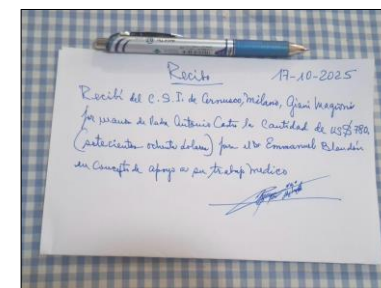 Recibo 17-10-2025
Recibí del C.S.I. de Cernusco, Milano, Giani
por manos de Padre Antonio Castro la cantidad de US$ 780,
(setecientos ochenta dolares) para el Dr Emmanuel Blandón
en Concepto de apoyo a su trabajo medico